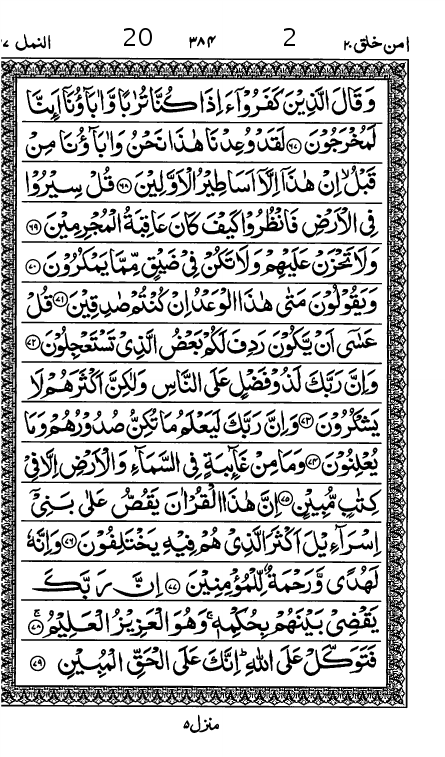 امن خلق ٢٠ 2 ٣٨٤ 20 النمل ٢٧
وَقَالَ الَّذِيْنَ كَفَرُوْۤا ءَاِذَا كُنَّا تُرٰبًا وَّاٰبَآؤُنَاۤ اَئِنَّا
لَمُخْرَجُوْنَ ﴿٦٧﴾ لَقَدْ وُعِدْنَا هٰذَا نَحْنُ وَاٰبَآؤُنَا مِنْ
قَبْلُ ۙ اِنْ هٰذَاۤ اِلَّاۤ اَسَاطِيْرُ الْاَوَّلِيْنَ ﴿٦٨﴾ قُلْ سِيْرُوْا
فِى الْاَرْضِ فَانْظُرُوْا كَيْفَ كَانَ عَاقِبَةُ الْمُجْرِمِيْنَ ﴿٦٩﴾
وَلَا تَحْزَنْ عَلَيْهِمْ وَلَا تَكُنْ فِىْ ضَيْقٍ مِّمَّا يَمْكُرُوْنَ ﴿٧٠﴾
وَيَقُوْلُوْنَ مَتٰى هٰذَا الْوَعْدُ اِنْ كُنْتُمْ صٰدِقِيْنَ ﴿٧١﴾ قُلْ
عَسٰۤى اَنْ يَّكُوْنَ رَدِفَ لَكُمْ بَعْضُ الَّذِىْ تَسْتَعْجِلُوْنَ ﴿٧٢﴾
وَاِنَّ رَبَّكَ لَذُوْ فَضْلٍ عَلَى النَّاسِ وَلٰكِنَّ اَكْثَرَهُمْ لَا
يَشْكُرُوْنَ ﴿٧٣﴾ وَاِنَّ رَبَّكَ لَيَعْلَمُ مَا تُكِنُّ صُدُوْرُهُمْ وَمَا
يُعْلِنُوْنَ ﴿٧٤﴾ وَمَا مِنْ غَآئِبَةٍ فِى السَّمَآءِ وَالْاَرْضِ اِلَّا فِىْ
كِتٰبٍ مُّبِيْنٍ ﴿٧٥﴾ اِنَّ هٰذَا الْقُرْاٰنَ يَقُصُّ عَلٰى بَنِىْۤ
اِسْرَآءِيْلَ اَكْثَرَ الَّذِىْ هُمْ فِيْهِ يَخْتَلِفُوْنَ ﴿٧٦﴾ وَاِنَّهٗ
لَهُدًى وَّرَحْمَةٌ لِّلْمُؤْمِنِيْنَ ﴿٧٧﴾ اِنَّ رَبَّكَ
يَقْضِىْ بَيْنَهُمْ بِحُكْمِهٖ ۚ وَهُوَ الْعَزِيْزُ الْعَلِيْمُ ۚ ﴿٧٨﴾
فَتَوَكَّلْ عَلَى اللّٰهِ ؕ اِنَّكَ عَلَى الْحَقِّ الْمُبِيْنِ ﴿٧٩﴾
منزل ٥